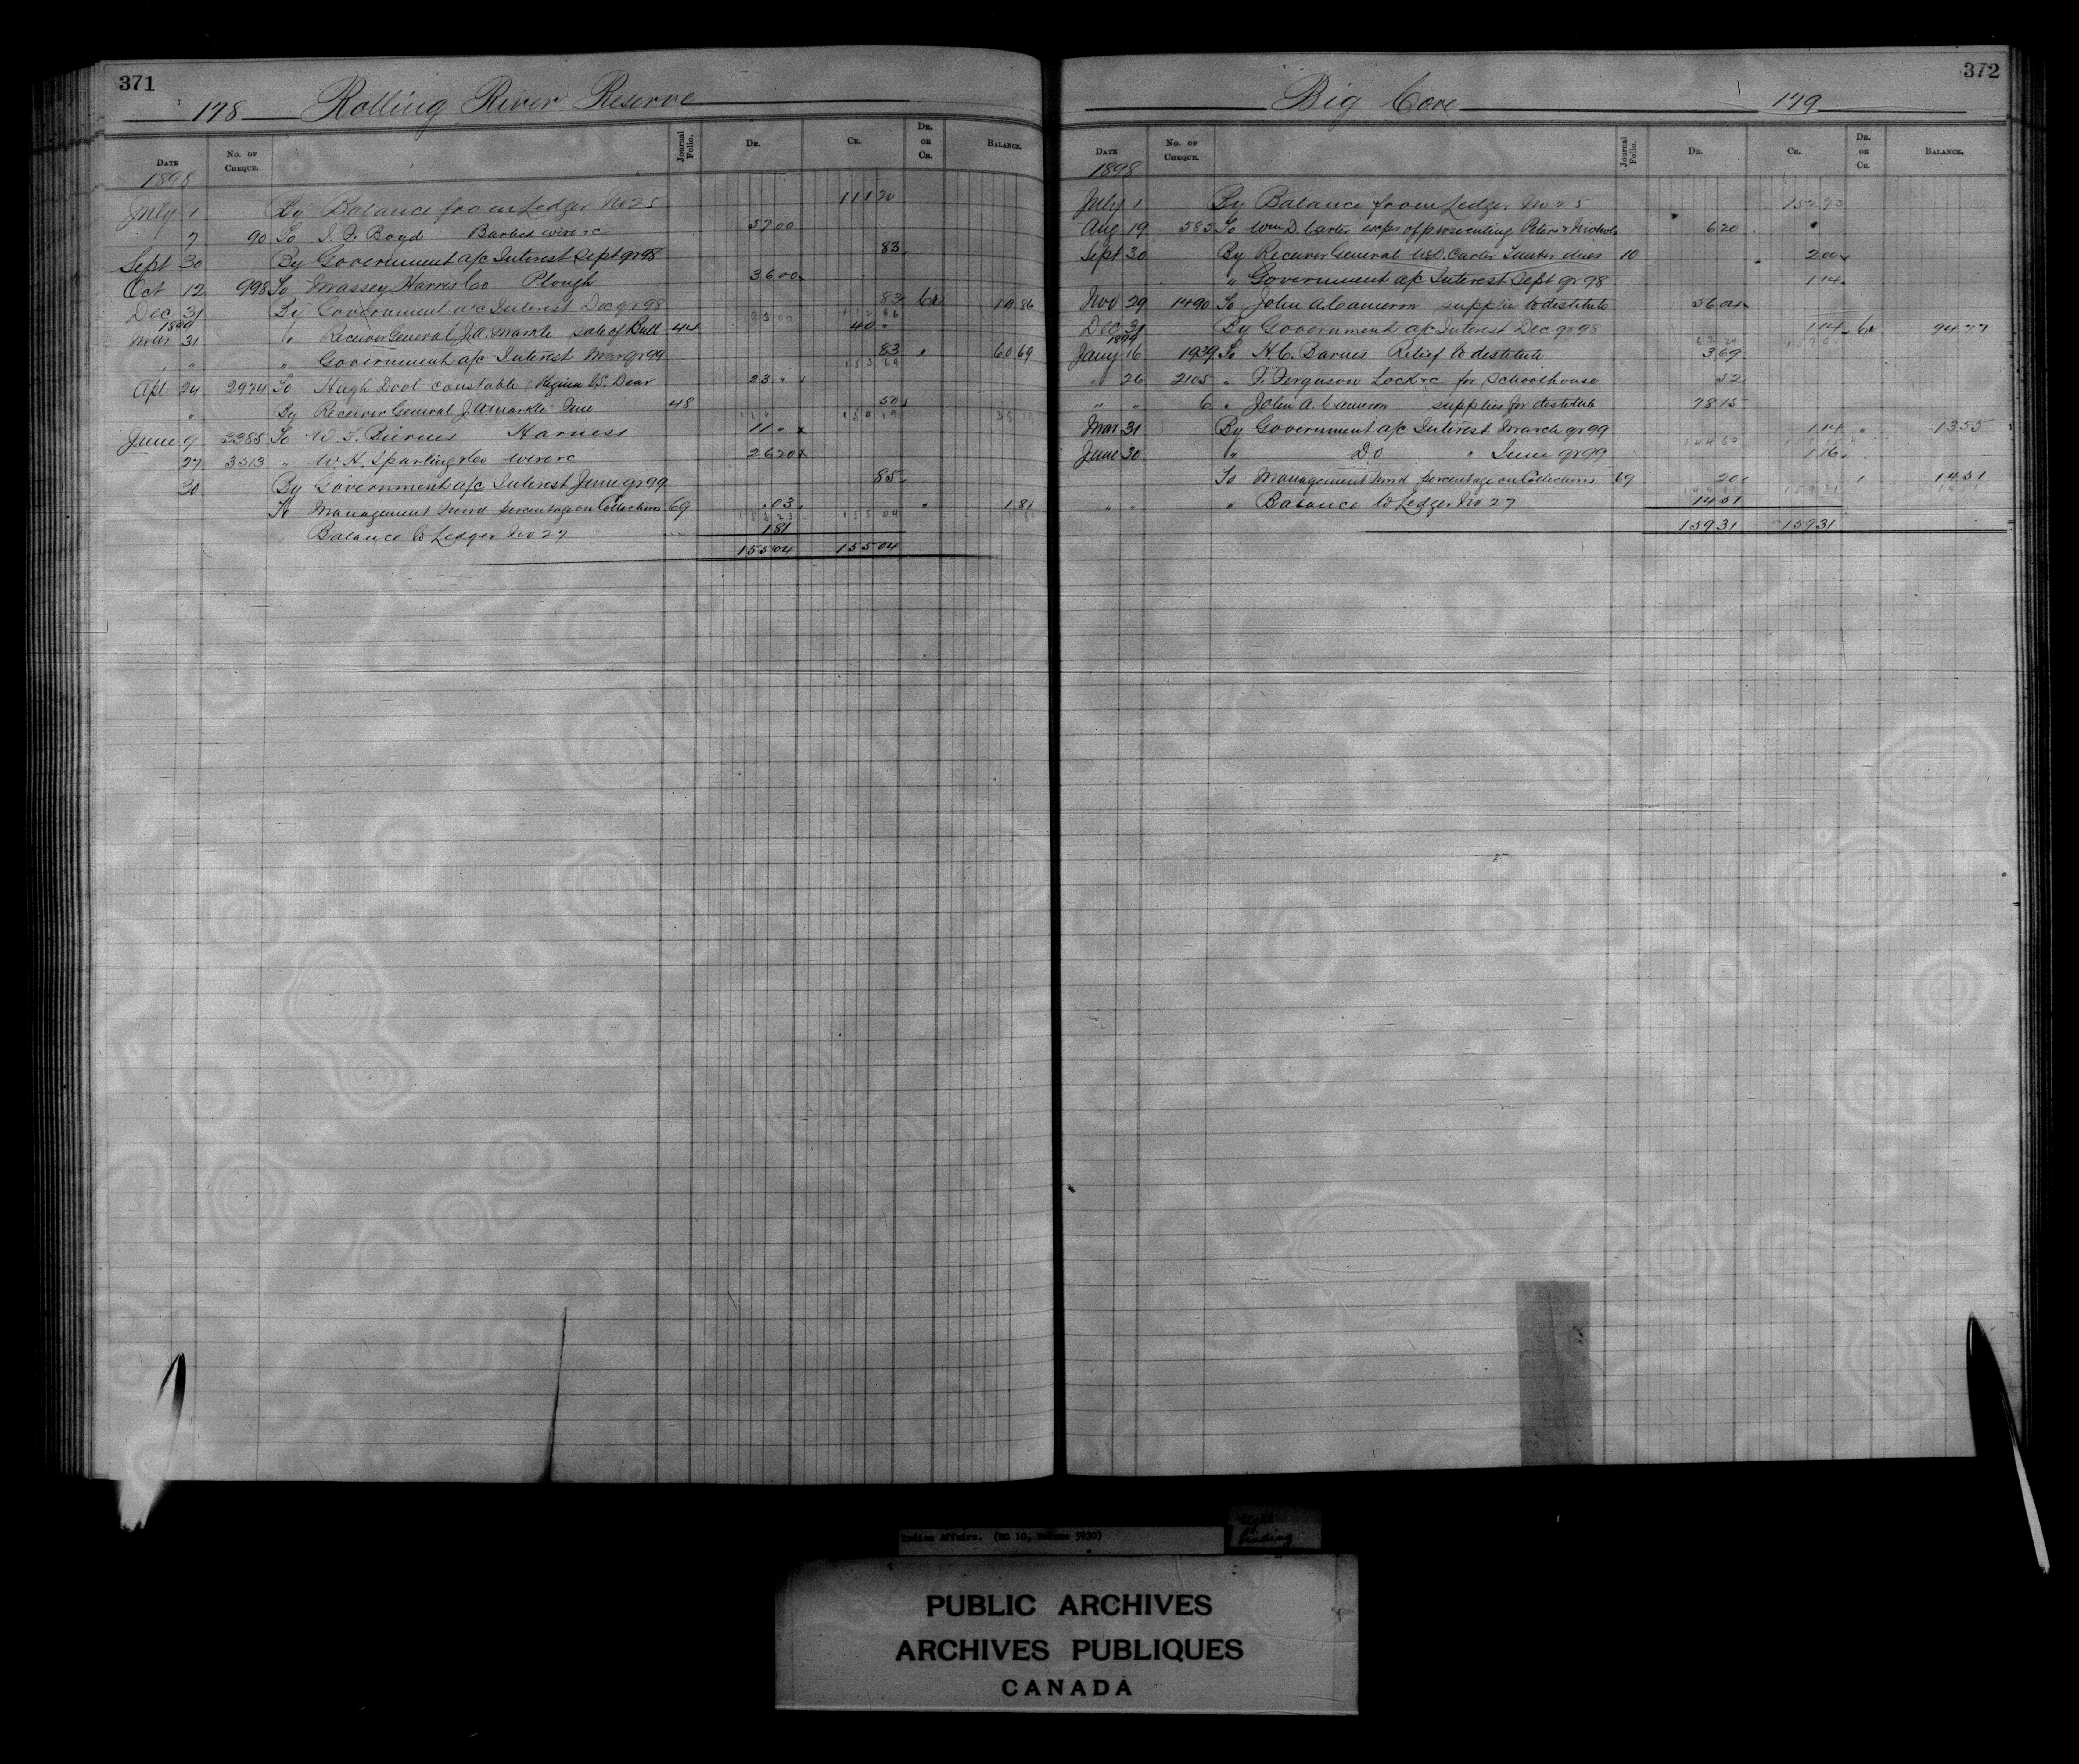 371
178 Rolling River Reserve
Date No. of Cheque. Journal Folio. Dr. Cr. Dr. or Cr. Balance.
1898
July 1 By Balance from Ledger No 25 111 20
7 90 To Boyd Barbed wire &c 57 00
Sept 30 By Government a/c Interest Sept qr 98 83
Oct 12 998 To Massey Harris Co Plough 36 00
Dec 31 By Government a/c Interest Dec qr 98 83 Cr 19 86
93 00 112 86
1899
Mar 31 " Receiver General J.A. Markle sale of Bull 44 40 "
" " " Government a/c Interest Mar qr 99 83 " 60 69
153 69
Apl 24 2974 To Hugh constable Regina vs. Dear 23 "
" By Receiver General J.A. Markle Fine 48 50
June 9 3385 To Harness 11 "
27 3513 " W.H. Sparling & Co wire &c 26 20
30 By Government a/c Interest June qr 99 85
To Management Fund percentage on Collections 69 .03 " 1 81
153 23 155 04
Balance to Ledger No 27 1 81
155 04 155 04
372
Big Cove 179
Date No. of Cheque. Journal Folio. Dr. Cr. Dr. or Cr. Balance.
1898
July 1 By Balance from Ledger No 25 152 73
Aug 19 585 To Wm D. Carter exps of prosecuting Peters & Nichols 6 20
Sept 30 By Receiver General W.D. Carter Timber dues 10 2 00
" Government a/c Interest Sept qr 98 1 14
Nov 29 1490 To John A Cameron supplies to destitute 56 04
Dec 31 By Government a/c Interest Dec qr 98 1 14 Cr 94 77
62 24 157 01
1899
Jany 16 1939 To H.C. Relief to destitute 3 69
" 26 2105 " F. Ferguson Lock &c for Schoolhouse 52
" " 6 " John A. Cameron supplies for destitute 78 15
Mar 31 By Government a/c Interest March qr 99 1 14 " 13 55
June 30 " Do " June qr 99 1 16
To Management Fund percentage on Collections 69 20 " 14 51
" " " Balance to Ledger No 27 14 51
159 31 159 31
Indian Affairs. (RG 10, Volume 5930)
tight
binding
PUBLIC ARCHIVES
ARCHIVES PUBLIQUES
CANADA